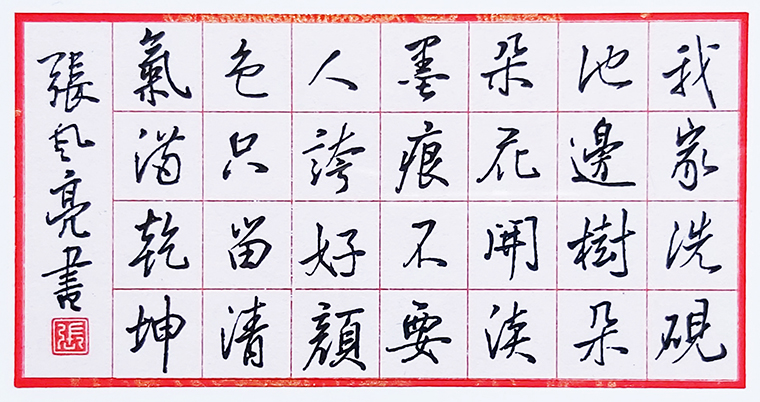 我家洗硯
池邊樹朵
朵花開淡
墨痕不要
人誇好顏
色只留清
氣滿乾坤
張風亮書
張